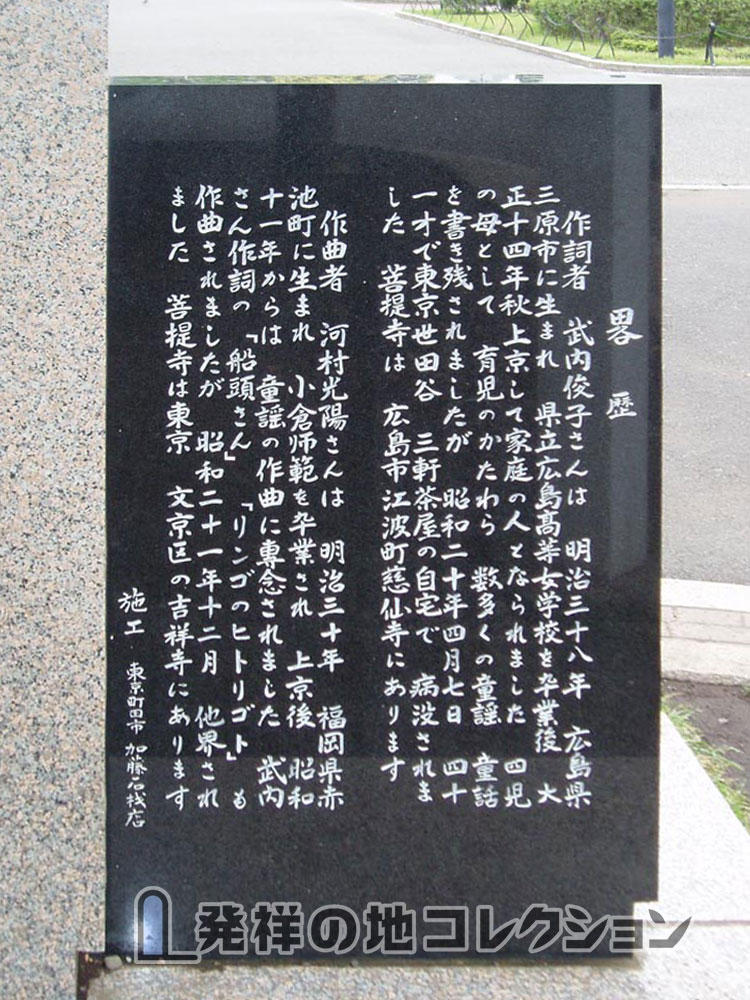 畧歴
作詞者　武内俊子さんは　明治三十八年　広島県
三原市に生まれ　県立広島高等女学校を卒業後　大
正十四年秋上京して家庭の人となられました　四児
の母として　育児のかたわら　数多くの童謡　童話
を書き残されましたが　昭和二十年四月七日　四十
一才で東京世田谷　三軒茶屋の自宅で　病没されま
した　菩提寺は　広島市江波町慈仙寺にあります
作曲者　河村光陽さんは　明治三十年　福岡県赤
池町に生まれ　小倉師範を卒業され　上京後　昭和
十一年からは　童謡の作曲に専念されました　武内
さん作詞の「船頭さん」「リンゴのヒトリゴト」も
作曲されましたが　昭和二十一年十二月　他界され
ました　菩提寺は東京　文京区の吉祥寺にあります
施工　東京町田市　加藤石材店
発祥の地コレクション